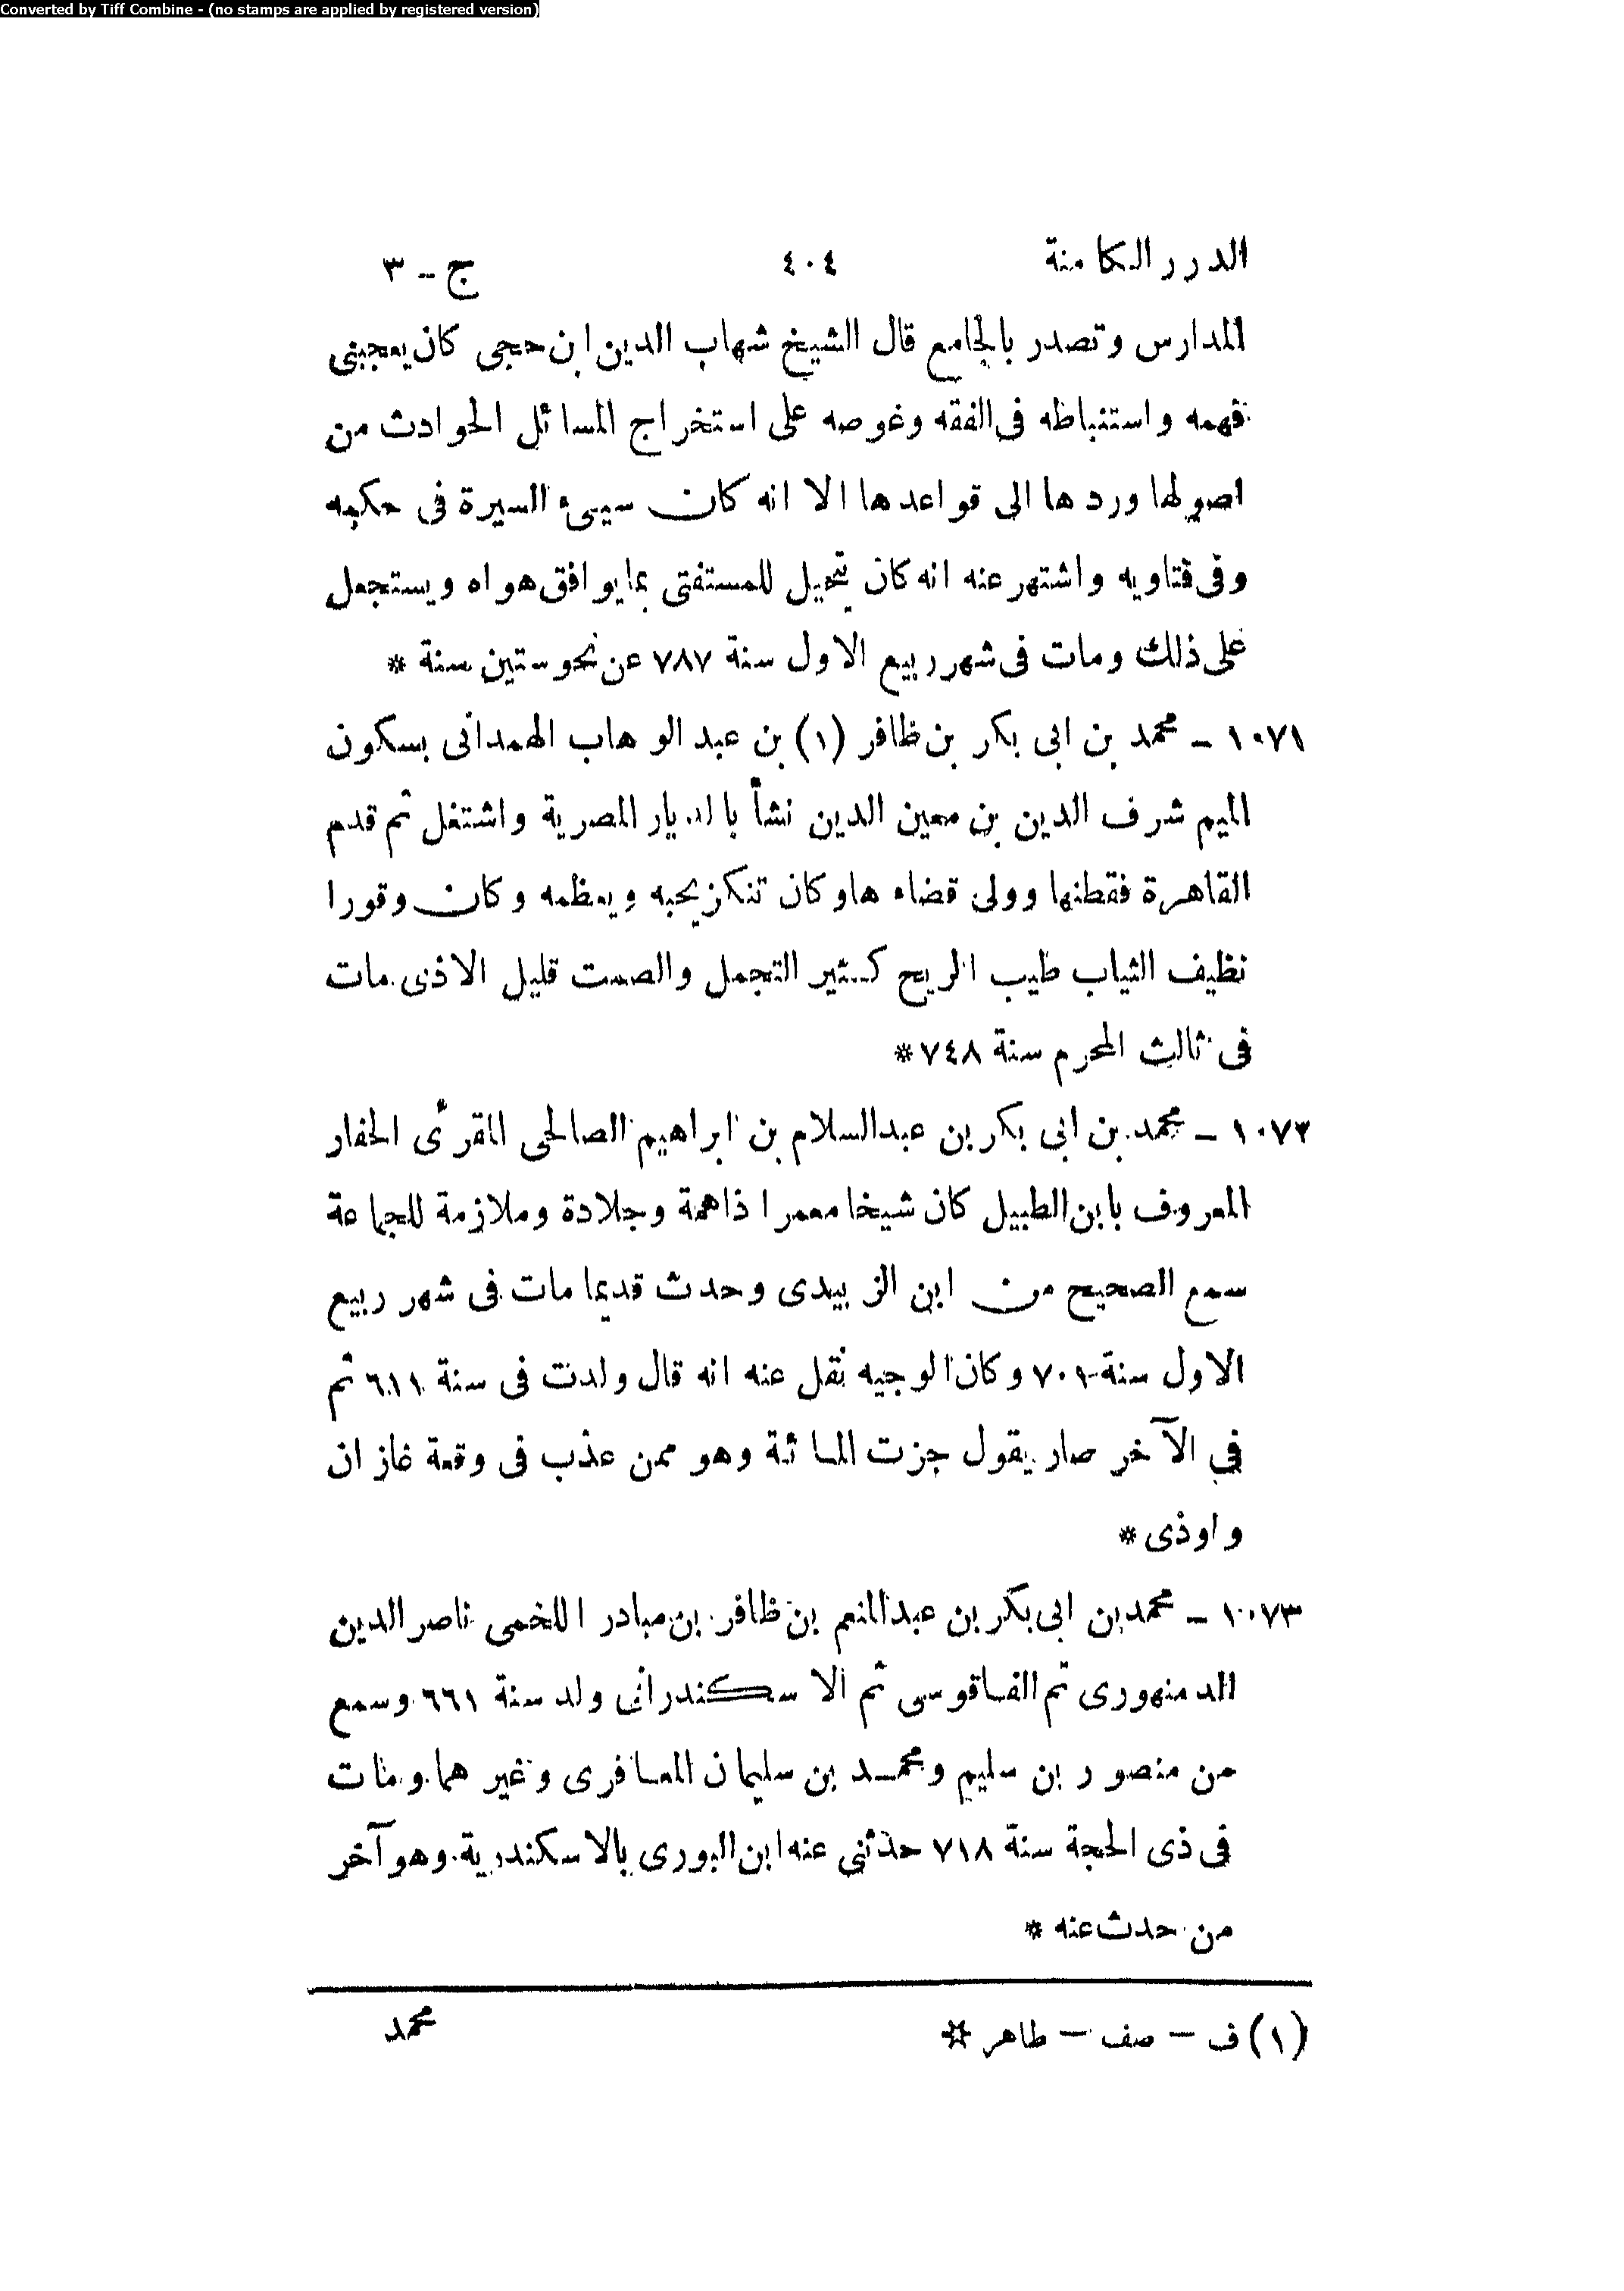 Converted by Tiff Combine - (no stamps are applied by registered version)
الدرر الكامنة ٤٠٤ ج - ٣
المدارس وتصدر بالجامع قال الشيخ شهاب الدين ابن حجى كان يعجبنى
فهمه واستنباطه فى الفقه وغوصه على استخراج المسائل الحوادث من
اصولها وردها الى قواعدها الا انه كان سيىء السيرة فى حكمه
وفى فتاويه واشتهر عنه انه كان يتحيل للمستفتى بما يوافق هواه ويستجعل
على ذلك ومات فى شهر ربيع الاول سنة ٧٨٧ عن نحو ستين سنة *
١٠٧١ - محمد بن ابى بكر بن ظافر (١) بن عبد الوهاب الهمدانى بسكون
الميم شرف الدين بن معين الدين نشأ بالديار المصرية واشتغل ثم قدم
القاهرة فقطنها وولى قضاء ها وكان تنكز يحبه ويعظمه وكان وقورا
نظيف الثياب طيب الريح كثير التجمل والصمت قليل الاذى مات
فى ثالث المحرم سنة ٧٤٨ *
١٠٧٢ - محمد بن ابى بكر بن عبد السلام بن ابراهيم الصالحى المقرئ الحفار
المعروف بابن الطبيل كان شيخا معمرا ذاهمة وجلادة وملازمة للجماعة
سمع الصحيح من ابن الزبيدى وحدث قديما مات فى شهر ربيع
الاول سنة ٧٠١ وكان الوجيه نقل عنه انه قال ولدت فى سنة ٦١١ ثم
في الآخر صار يقول جزت المائة وهو ممن عذب فى وقعة غازان
واوذى *
١٠٧٣ - محمد بن ابى بكر بن عبد المنعم بن ظافر بن مبادر اللخمى ناصر الدين
الدمنهورى ثم الفاقوسى ثم الاسكندرانى ولد سنة ٦٦١ وسمع
من منصور بن سليم ومحمد بن سليمان المعافرى وغيرهما ومات
فى ذى الحجة سنة ٧١٨ حدثنى عنه ابن البورى بالاسكندرية وهو آخر
من حدث عنه *
(١) ف - صف - طاهر * محمد